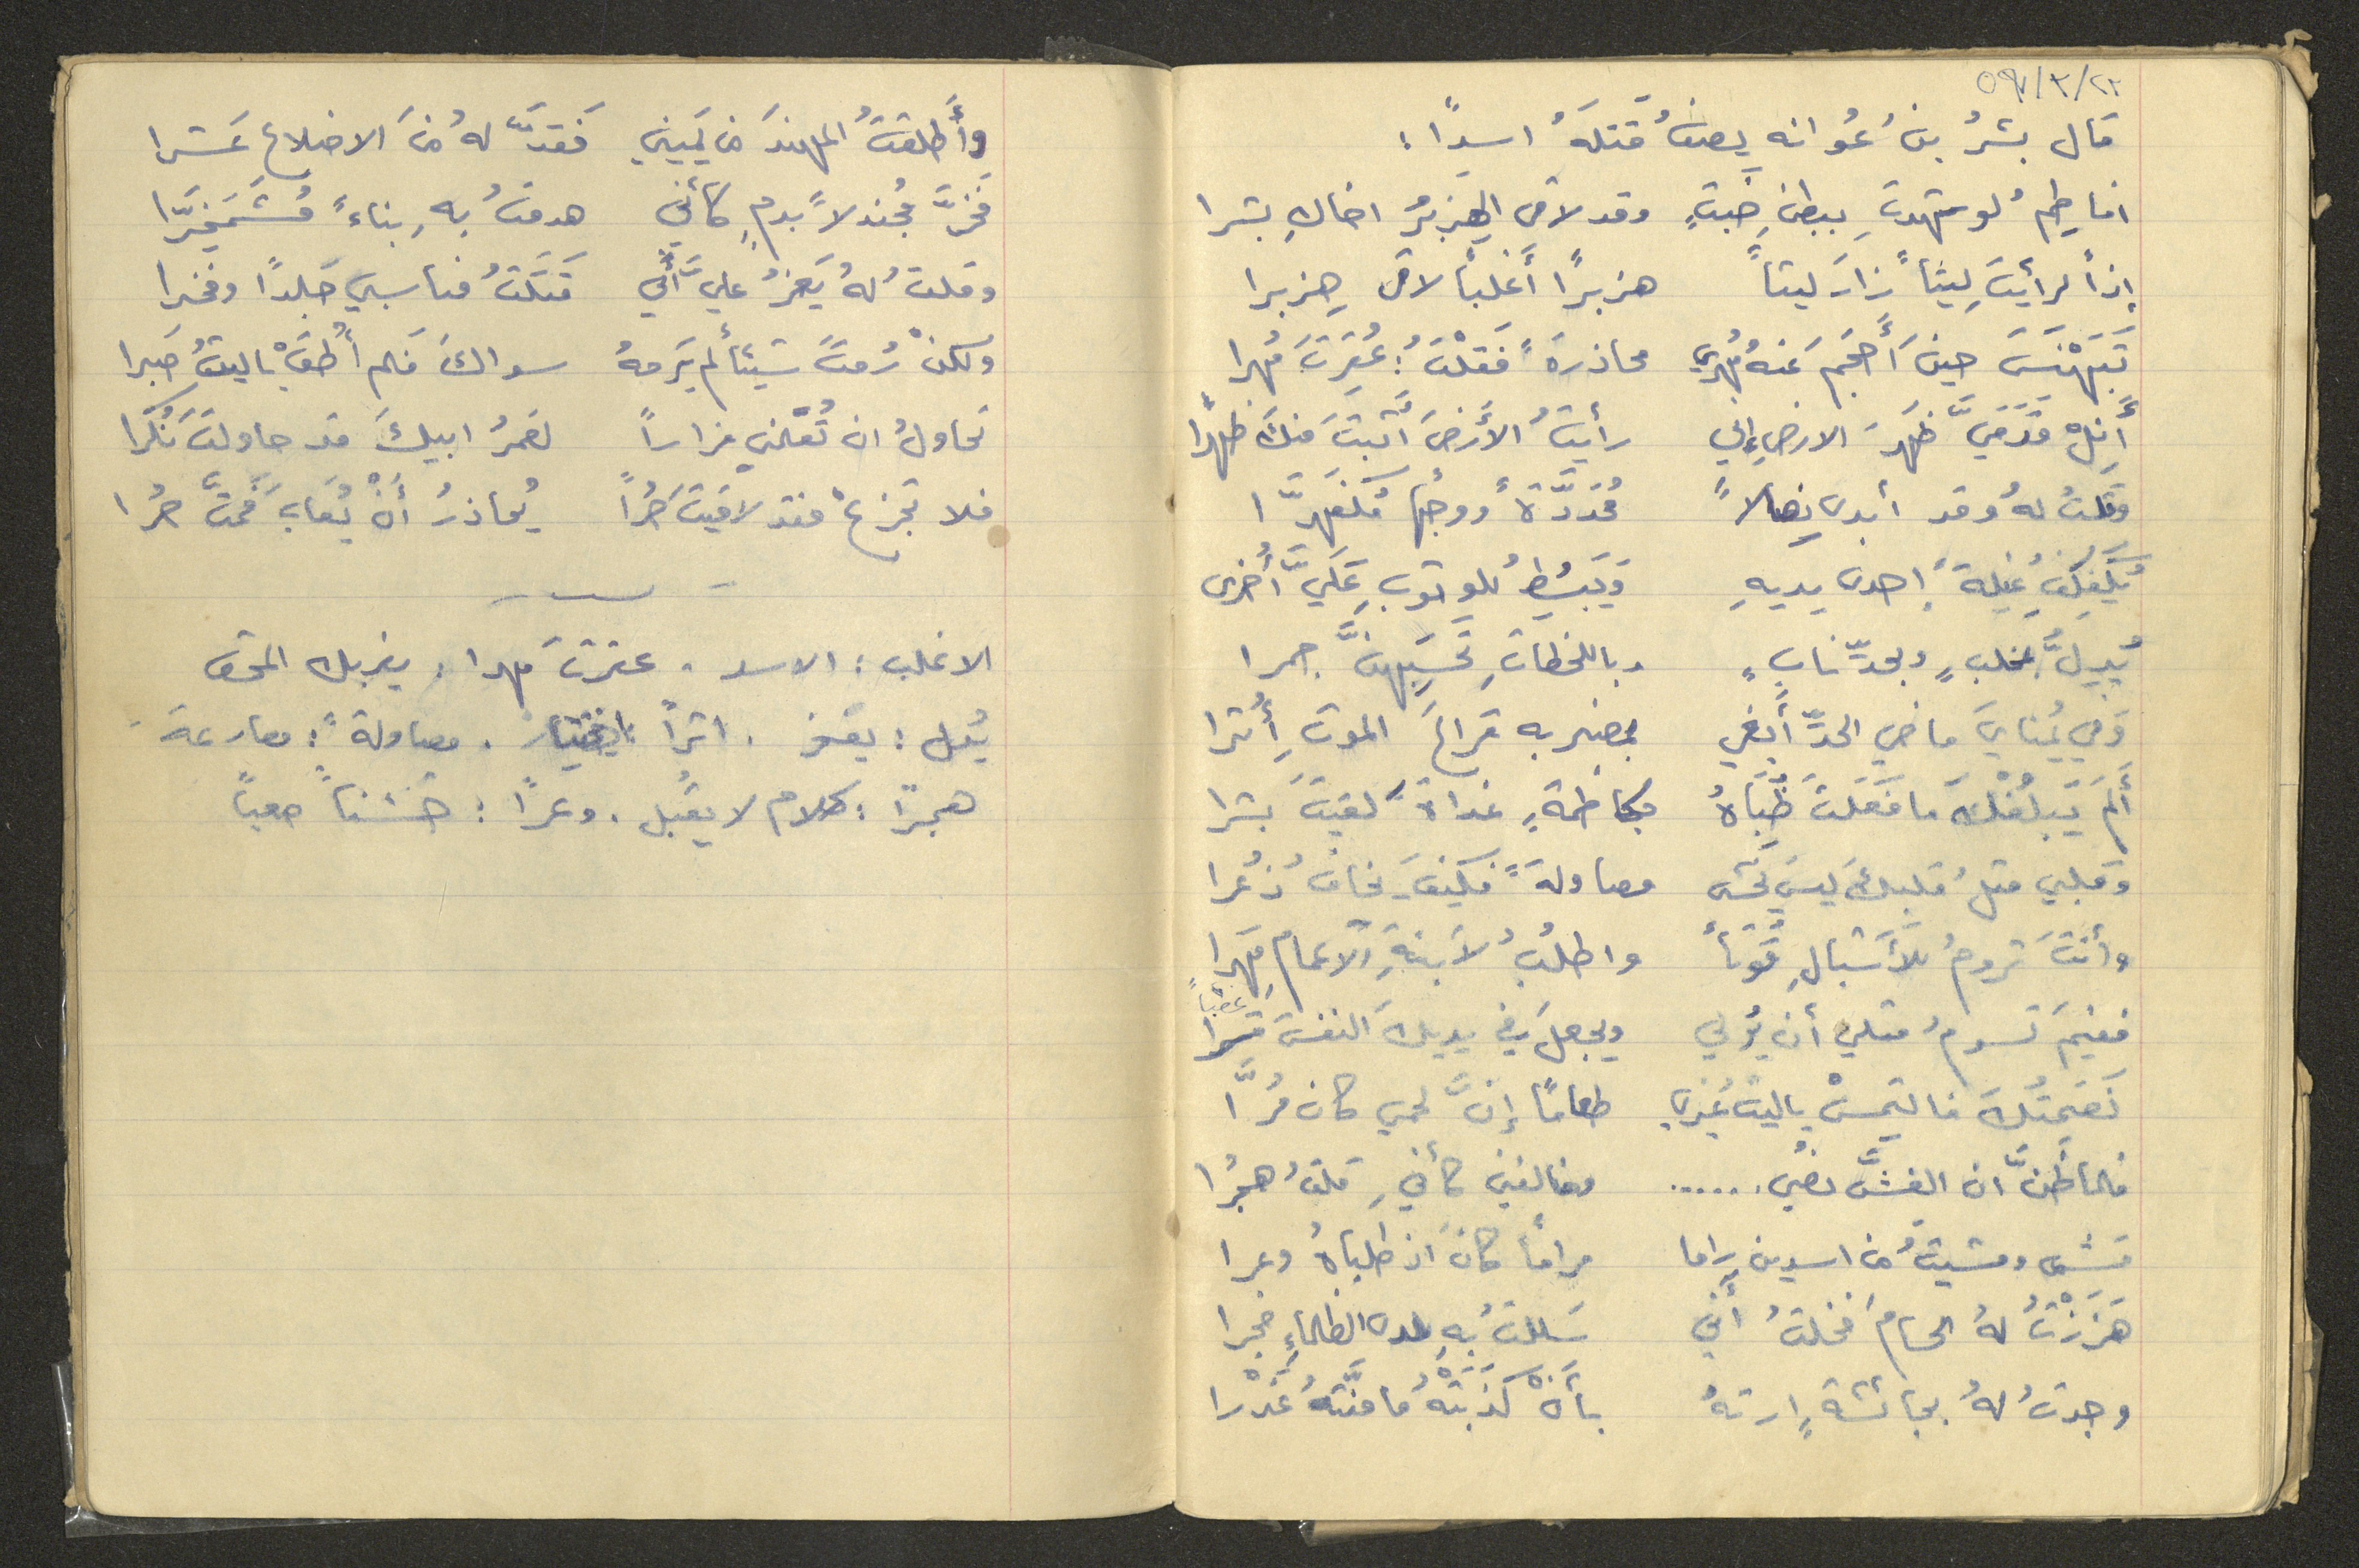 ٥٩/٣/٢٣
قال بشرُ بنُ عُوانه يصفُ قتلَهُ اسدًا :
افاطِمُ لو شهدتِ ببطنِ خَبتٍ وقد لاقى الهِزبرُ اخاكِ بشرا
إذاً لرأيتِ ليثاً زارَ ليثاً هزبرًا أَغلباً لاقى هِزبرا
تَبَهْنَسَ حينَ أَحجَمَ عنهُ مُهري محاذرةً فَقلْتُ : عُقِرتَ مُهرا
أَنِلْ قَدَمَيَّ ظَهرَ الارضِ إني رأيتُ الأَرضَ اثبتَ منكَ ظهرًا
وقلتُ لهُ وقد أبدى نِصالاً مُحَدَّدَةً ووجهًا مُكفَهِرَّا
يُكَفكِفُ غِيلةً إحدى يديهِ وَيَبسُطُ للوثوبِ عَلَيَّ أُخرى
يُدِلُّ بمخلبٍ وبحدِّ نابٍ وباللحظاتِ تَحسَبُهنَّ جمرا
وَفي يُمنايَ ماضي الحدِّ أَبغي بمضربه قراعَ الموتِ أُثرا
أَلَم يَبلُغْكَ ما فَعَلت ظُباهُ بكاظمةٍ غداةَ لقيتَ بشرا
وقلبي مثلُ قلبِكَ ليسَ يخشى مصاولةً فكيفَ يخافُ ذُعرا
وأنتَ ترومُ للأَشبالِ قُوتاً واطلُبُ لابنةِ الاعمامِ مَهرا
ففيمَ تسومُ مثلي أن يُولي ويجعلَ في يديكَ النفسَ قسرا غصباً
نَصَحتُكَ فالتمسْ ياليثُ غيري طعامًا إنَّ لحمي كان مُرَّا
فلما ظنَّ ان الغشَّ نصحي ...... وخالفني كأني قلتُ هجرًا
مشى ومشيتُ من اسدينِ راما مرامًا كان اذ طلباهُ وعرا
هَزَزْتُ لهُ الحسامَ فخلتُ أني سَللتُ به لدى الظلماءِ فجرا
وجدتُ لهُ بجائشةٍ ارتهُ بأَنْ كَذَبَتْهُ ما منَّتهُ غَدْرا
وأَطلقتُ المهندَ من يَميني فَقدَّ لهُ منَ الاضلاعِ عَشرا
فَخرَّ مُجندلاً بدمٍ كأَنّي هدمتُ بهِ بناءً مُشمَخِرَّا
وقلتُ لهُ يَعزُ عليَّ أَنّي قَتَلتُ مناسبي جَلدًا وفخرا
ولكنْ رُمتَ شيئاً لم يَرمهُ سواكَ فلم أُطقْ ياليثُ صَبرا
تحاولُ ان تُعلمني فراراً لعَمرُ ابيكَ قد حاولتَ نُكرا
فلا تجزعْ فقد لاقيتَ حُراً يُحاذرُ أنْ يُعابَ فَمُتَّ حُرا
الاغلب : الاسد . عقرت مهرا :
يُدل : يفخر . اثراً : . مصاولةً : مصارعة
هجرًا : كلام لا يقبل . وعرًا : خشناً صعباً